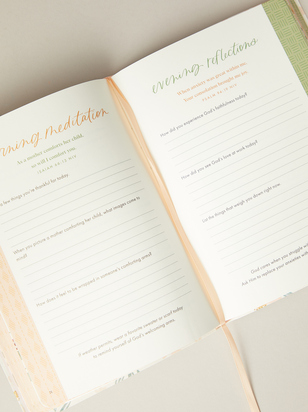 morning meditation
As a mother comforts her child,
so will I comfort you.
ISAIAH 66:13 NIV
a few things you're thankful for today.
When you picture a mother comforting her child, what images come to
mind?
How does it feel to be wrapped in someone's comforting arms?
If weather permits, wear a favorite sweater or scarf today
to remind yourself of God's welcoming arms.
evening reflections
When anxiety was great within me,
your consolation brought me joy.
PSALM 94:19 NIV
How did you experience God's faithfulness today?
How did you see God's love at work today?
List the things that weigh you down right now.
God cares when you struggle with
Ask Him to replace your anxieties with